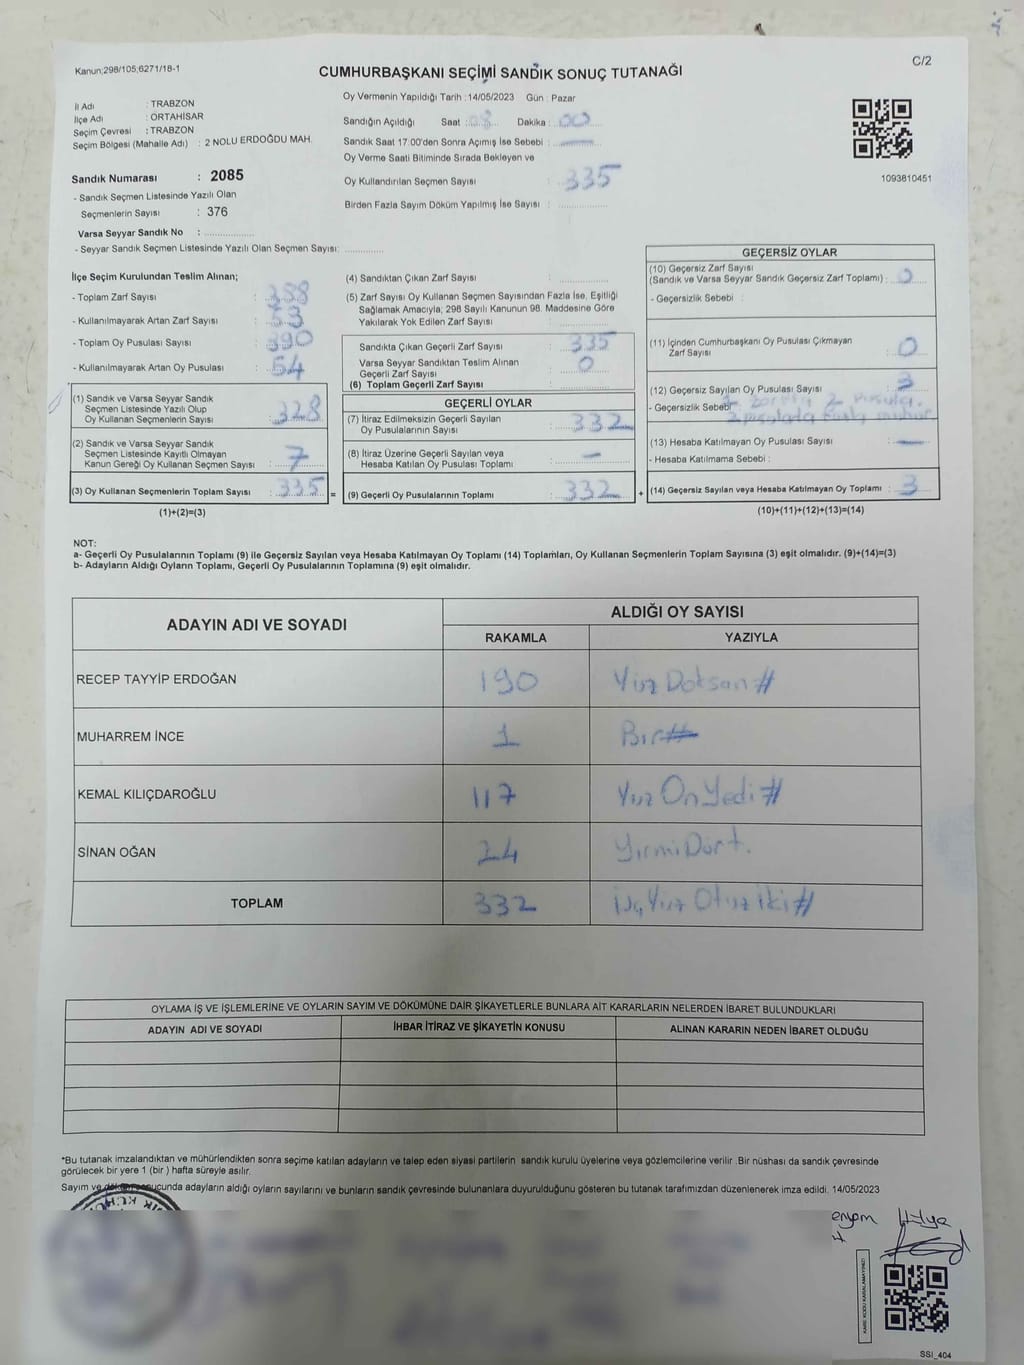 Kanun;298/105;6271/18-1
CUMHURBAŞKANI SEÇİMİ SANDIK SONUÇ TUTANAĞI
C/2
İl Adı : TRABZON
İlçe Adı : ORTAHİSAR
Seçim Çevresi : TRABZON
Seçim Bölgesi (Mahalle Adı) : 2 NOLU ERDOĞDU MAH.
Sandık Numarası : 2085
- Sandık Seçmen Listesinde Yazılı Olan
Seçmenlerin Sayısı : 376
Varsa Seyyar Sandık No :
- Seyyar Sandık Seçmen Listesinde Yazılı Olan Seçmen Sayısı:
Oy Vermenin Yapıldığı Tarih :14/05/2023 Gün : Pazar
Sandığın Açıldığı Saat : 08 Dakika : 00
Sandık Saat 17.00'den Sonra Açımış İse Sebebi :
Oy Verme Saati Bitiminde Sırada Bekleyen ve
Oy Kullandırılan Seçmen Sayısı : 335
Birden Fazla Sayım Döküm Yapılmış İse Sayısı :
1093810451
İlçe Seçim Kurulundan Teslim Alınan;
- Toplam Zarf Sayısı : 388
- Kullanılmayarak Artan Zarf Sayısı : 53
- Toplam Oy Pusulası Sayısı : 390
- Kullanılmayarak Artan Oy Pusulası : 54
(1) Sandık ve Varsa Seyyar Sandık
Seçmen Listesinde Yazılı Olup
Oy Kullanan Seçmenlerin Sayısı : 328
(2) Sandık ve Varsa Seyyar Sandık
Seçmen Listesinde Kayıtlı Olmayan
Kanun Gereği Oy Kullanan Seçmen Sayısı : 7
(3) Oy Kullanan Seçmenlerin Toplam Sayısı : 335 =
(1)+(2)=(3)
(4) Sandıktan Çıkan Zarf Sayısı :
(5) Zarf Sayısı Oy Kullanan Seçmen Sayısından Fazla İse, Eşitliği
Sağlamak Amacıyla; 298 Sayılı Kanunun 98. Maddesine Göre
Yakılarak Yok Edilen Zarf Sayısı :
Sandıkta Çıkan Geçerli Zarf Sayısı : 335
Varsa Seyyar Sandıktan Teslim Alınan
Geçerli Zarf Sayısı : 0
(6) Toplam Geçerli Zarf Sayısı :
GEÇERLİ OYLAR
(7) İtiraz Edilmeksizin Geçerli Sayılan
Oy Pusulalarının Sayısı : 332
(8) İtiraz Üzerine Geçerli Sayılan veya
Hesaba Katılan Oy Pusulası Toplamı : —
(9) Geçerli Oy Pusulalarının Toplamı : 332 +
GEÇERSİZ OYLAR
(10) Geçersiz Zarf Sayısı
(Sandık ve Varsa Seyyar Sandık Geçersiz Zarf Toplamı) : 0
- Geçersizlik Sebebi :
(11) İçinden Cumhurbaşkanı Oy Pusulası Çıkmayan
Zarf Sayısı : 0
(12) Geçersiz Sayılan Oy Pusulası Sayısı : 3
- Geçersizlik Sebebi : 1 zarfta 2 pusula.
2 pusulada
(13) Hesaba Katılmayan Oy Pusulası Sayısı : —
- Hesaba Katılmama Sebebi :
(14) Geçersiz Sayılan veya Hesaba Katılmayan Oy Toplamı : 3
(10)+(11)+(12)+(13)=(14)
NOT:
a- Geçerli Oy Pusulalarının Toplamı (9) ile Geçersiz Sayılan veya Hesaba Katılmayan Oy Toplamı (14) Toplamları, Oy Kullanan Seçmenlerin Toplam Sayısına (3) eşit olmalıdır. (9)+(14)=(3)
b- Adayların Aldığı Oyların Toplamı, Geçerli Oy Pusulalarının Toplamına (9) eşit olmalıdır.
ADAYIN ADI VE SOYADI ALDIĞI OY SAYISI
RAKAMLA YAZIYLA
RECEP TAYYİP ERDOĞAN 190 Yüz Doksan#
MUHARREM İNCE 1 Bir#
KEMAL KILIÇDAROĞLU 117 Yüz OnYedi#
SİNAN OĞAN 24 YirmiDört.
TOPLAM 332 ÜçYüz Otuz İki#
OYLAMA İŞ VE İŞLEMLERİNE VE OYLARIN SAYIM VE DÖKÜMÜNE DAİR ŞİKAYETLERLE BUNLARA AİT KARARLARIN NELERDEN İBARET BULUNDUKLARI
ADAYIN ADI VE SOYADI İHBAR İTİRAZ VE ŞİKAYETİN KONUSU ALINAN KARARIN NEDEN İBARET OLDUĞU
*Bu tutanak imzalandıktan ve mühürlendikten sonra seçime katılan adayların ve talep eden siyasi partilerin sandık kurulu üyelerine veya gözlemcilerine verilir .Bir nüshası da sandık çevresinde
görülecek bir yere 1 (bir ) hafta süreyle asılır.
Sayım ve sonucunda adayların aldığı oyların sayılarını ve bunların sandık çevresinde bulunanlara duyurulduğunu gösteren bu tutanak tarafımızdan düzenlenerek imza edildi. 14/05/2023
Hülya
KARE KODU KARALAMAYINIZ!
SSI_404